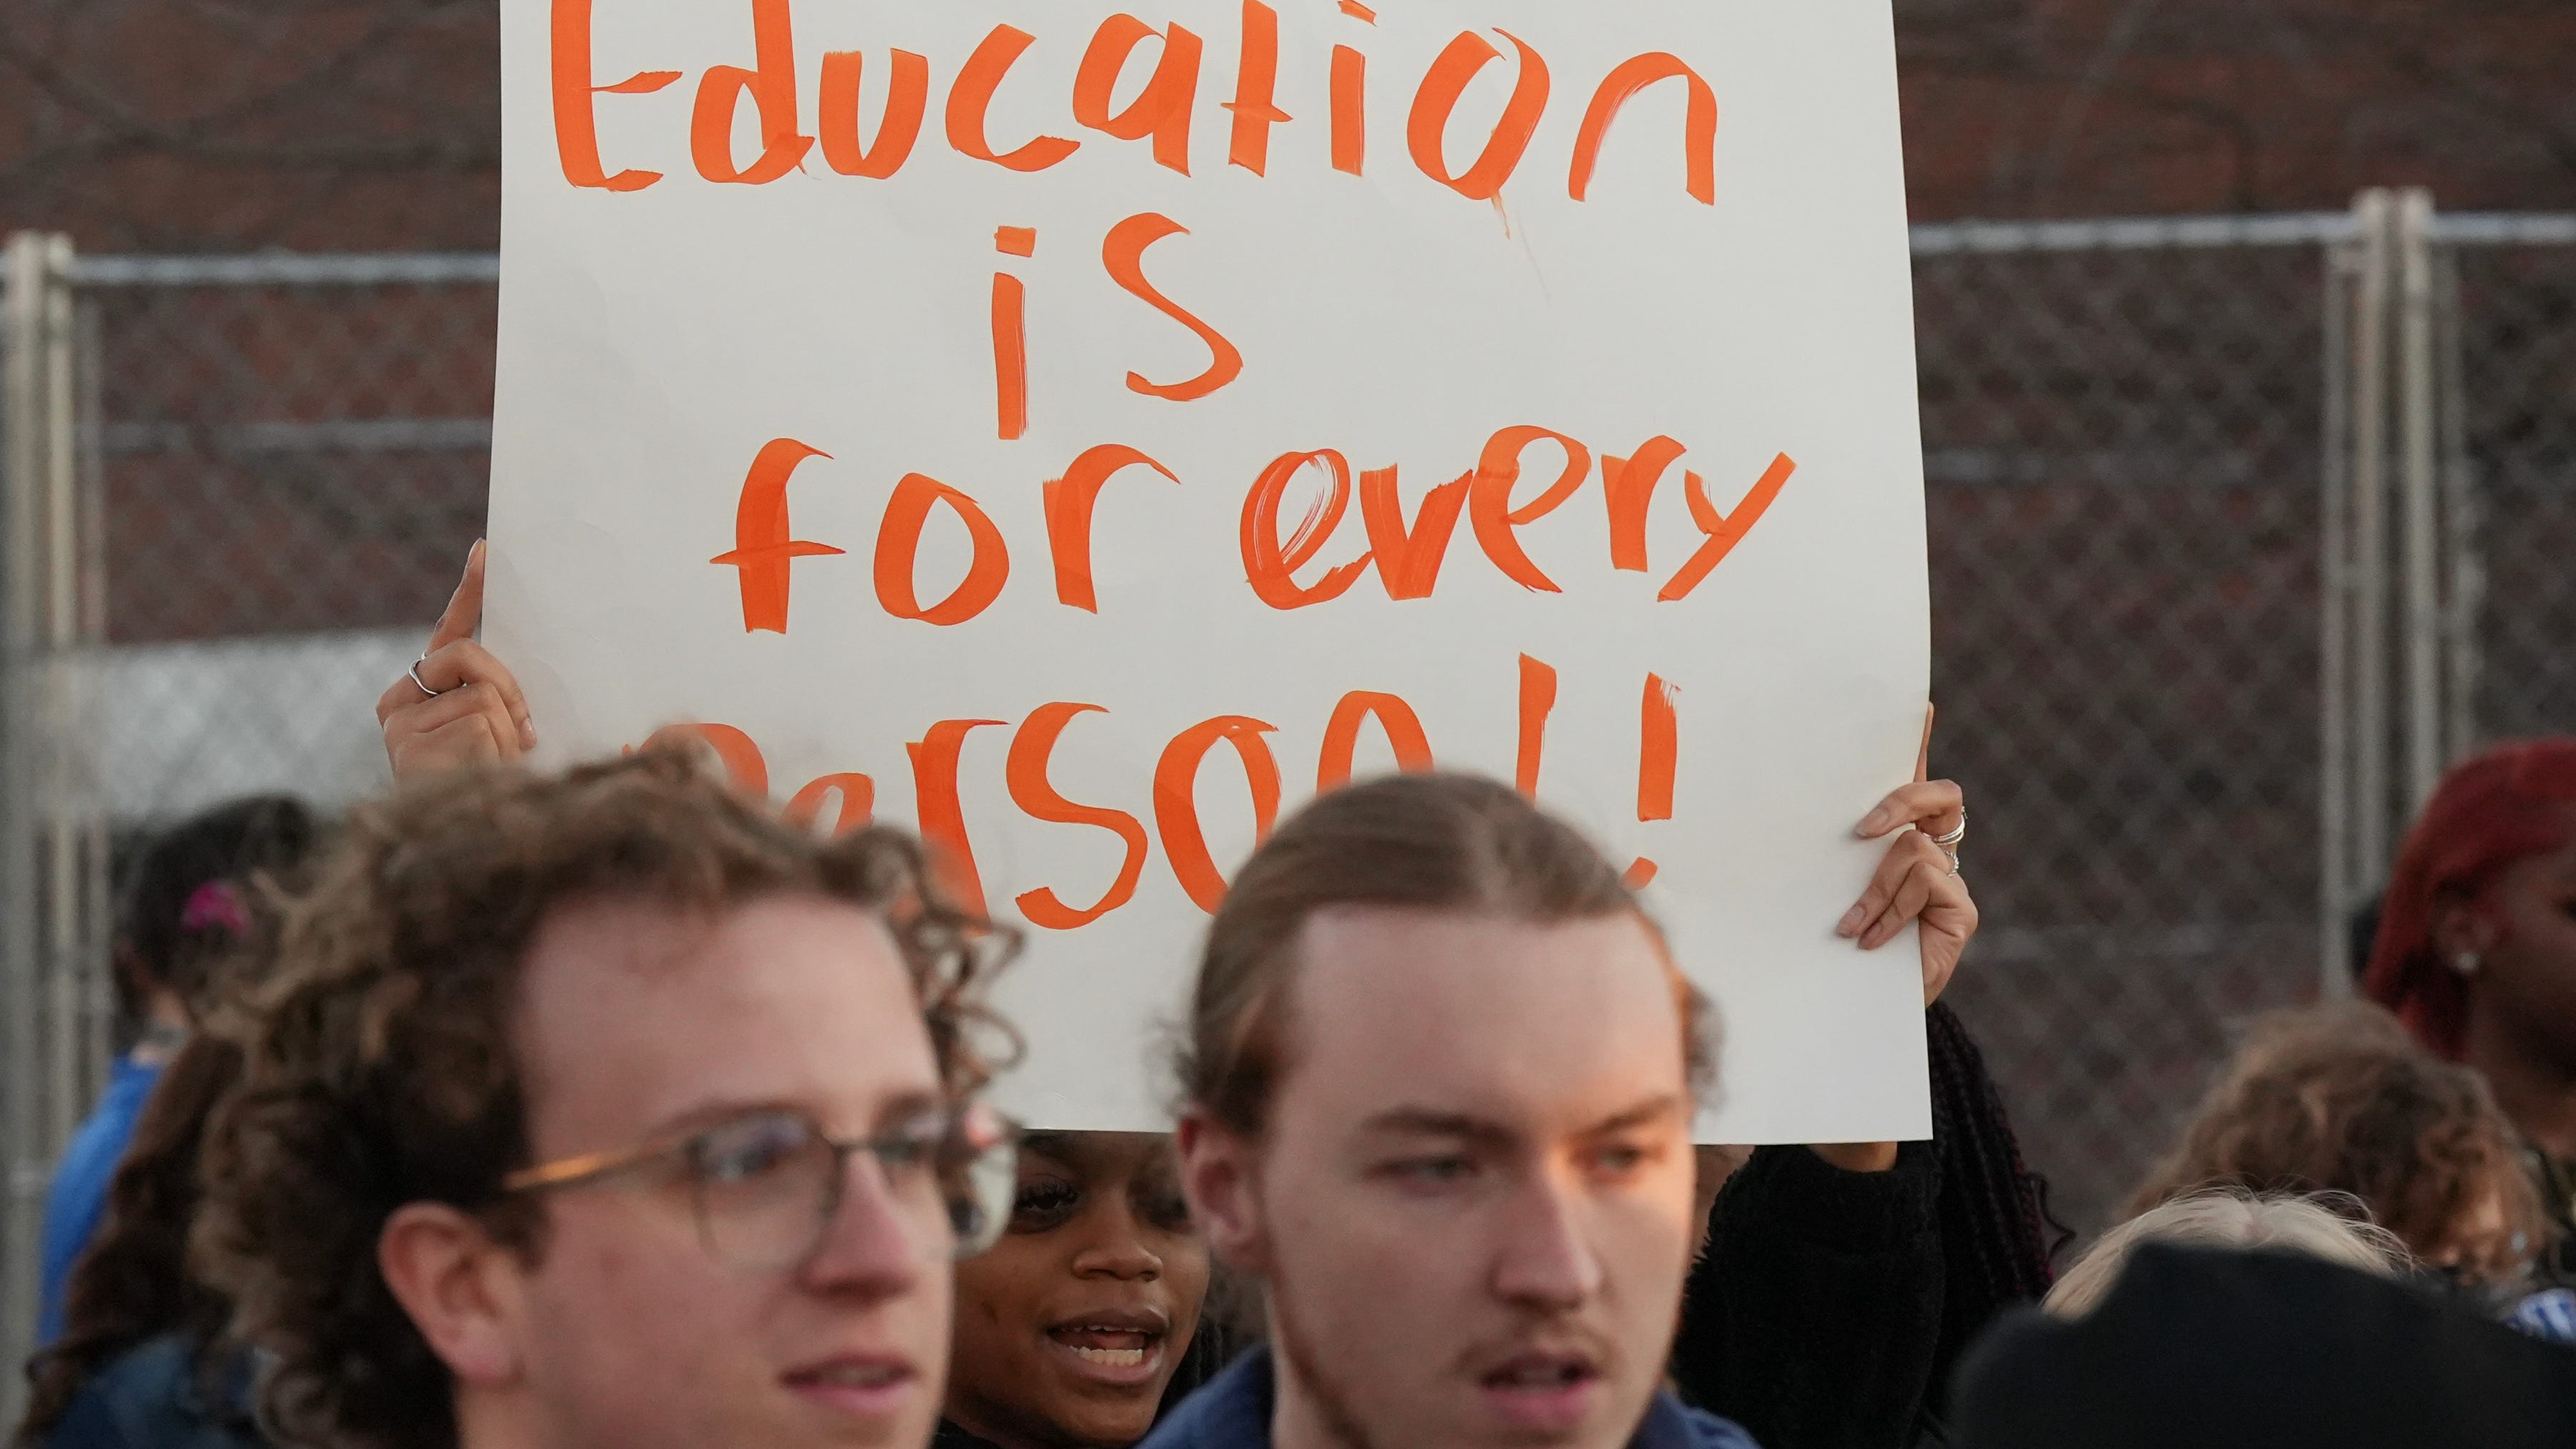 Education
is
for every
Person!!